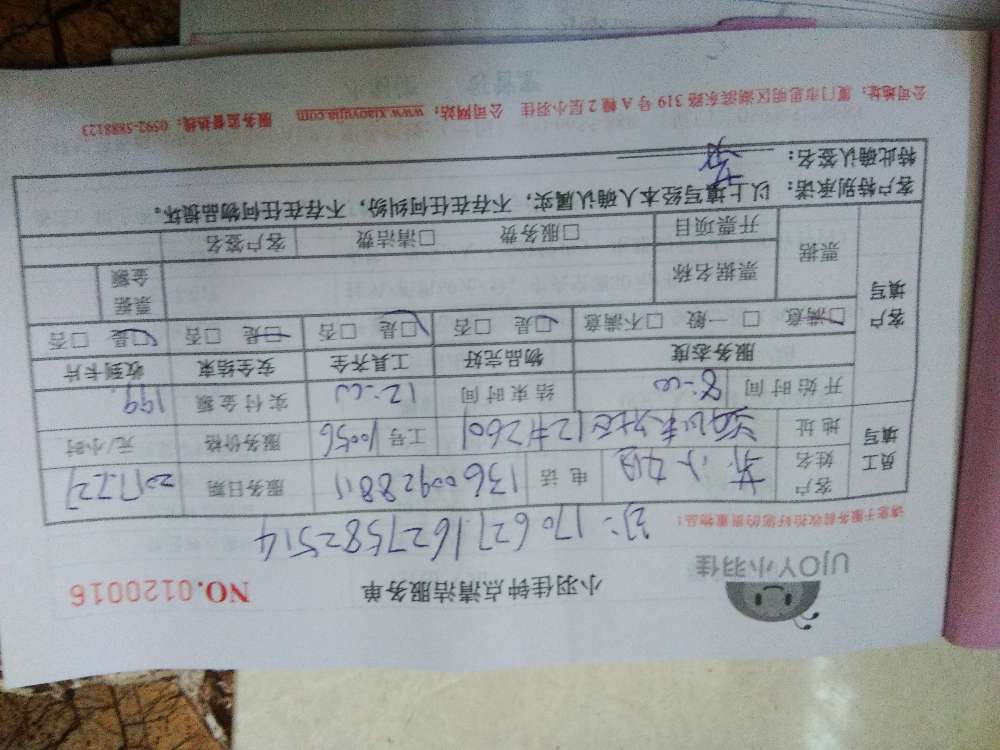 UJOY小羽佳
小羽佳钟点清洁服务单
NO.0120016
请您于服务前收拾好您的贵重物品!
订: 170627162758825514
员工填写
客户姓名 小姐 电话 13600928811 服务日期 2017.7.27
地址 12#2601 工号 10056 服务价格 元/小时
开始时间 8:00 结束时间 12:00 实付金额 199
客户填写
服务态度 物品完好 工具齐全 安全结束 收到卡片
□满意 □一般 □不满意 □是 □否 □是 □否 □是 □否 □是 □否
票据 票据名称 票据金额
开票项目 □服务费 □清洁费 客户签名
客户特别承诺: 以上填写经本人确认属实,不存在任何纠纷,不存在任何物品损坏。
特此确认签名:
公司地址: 厦门市思明区湖滨东路 319 号 A 幢 2 层小羽佳 公司网站: www.xiaoyujia.com 服务监督热线: 0592-5888123